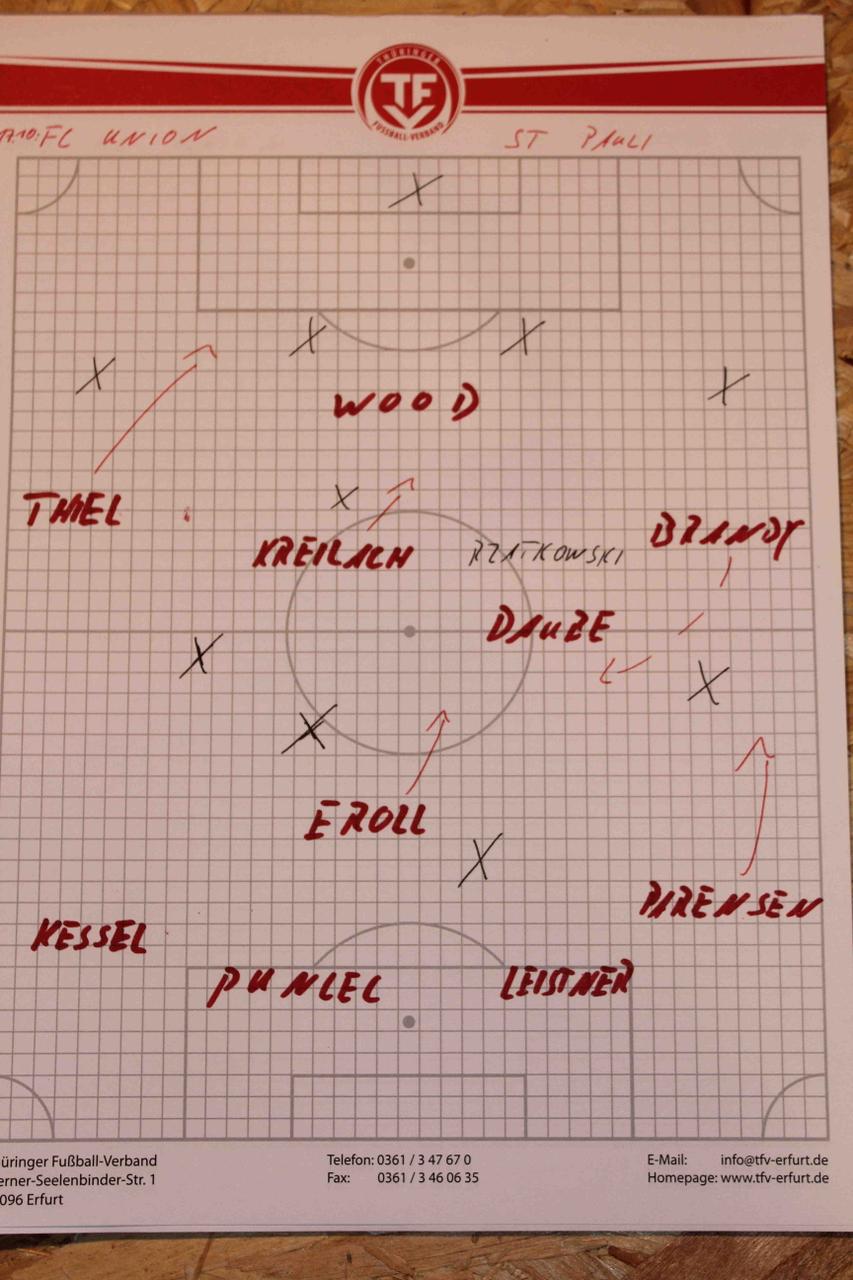 THÜRINGER
TF
FUSSBALL-VERBAND
17.10: FC UNION ST PAULI
WOOD
THIEL
BRANDY
KREILACH RZATKOWSKI
DAUBE
EROLL
PARENSEN
KESSEL
PUNCEC LEISTNER
üringer Fußball-Verband Telefon: 0361 / 3 47 67 0 E-Mail: info@tfv-erfurt.de
erner-Seelenbinder-Str. 1 Fax: 0361 / 3 46 06 35 Homepage: www.tfv-erfurt.de
096 Erfurt